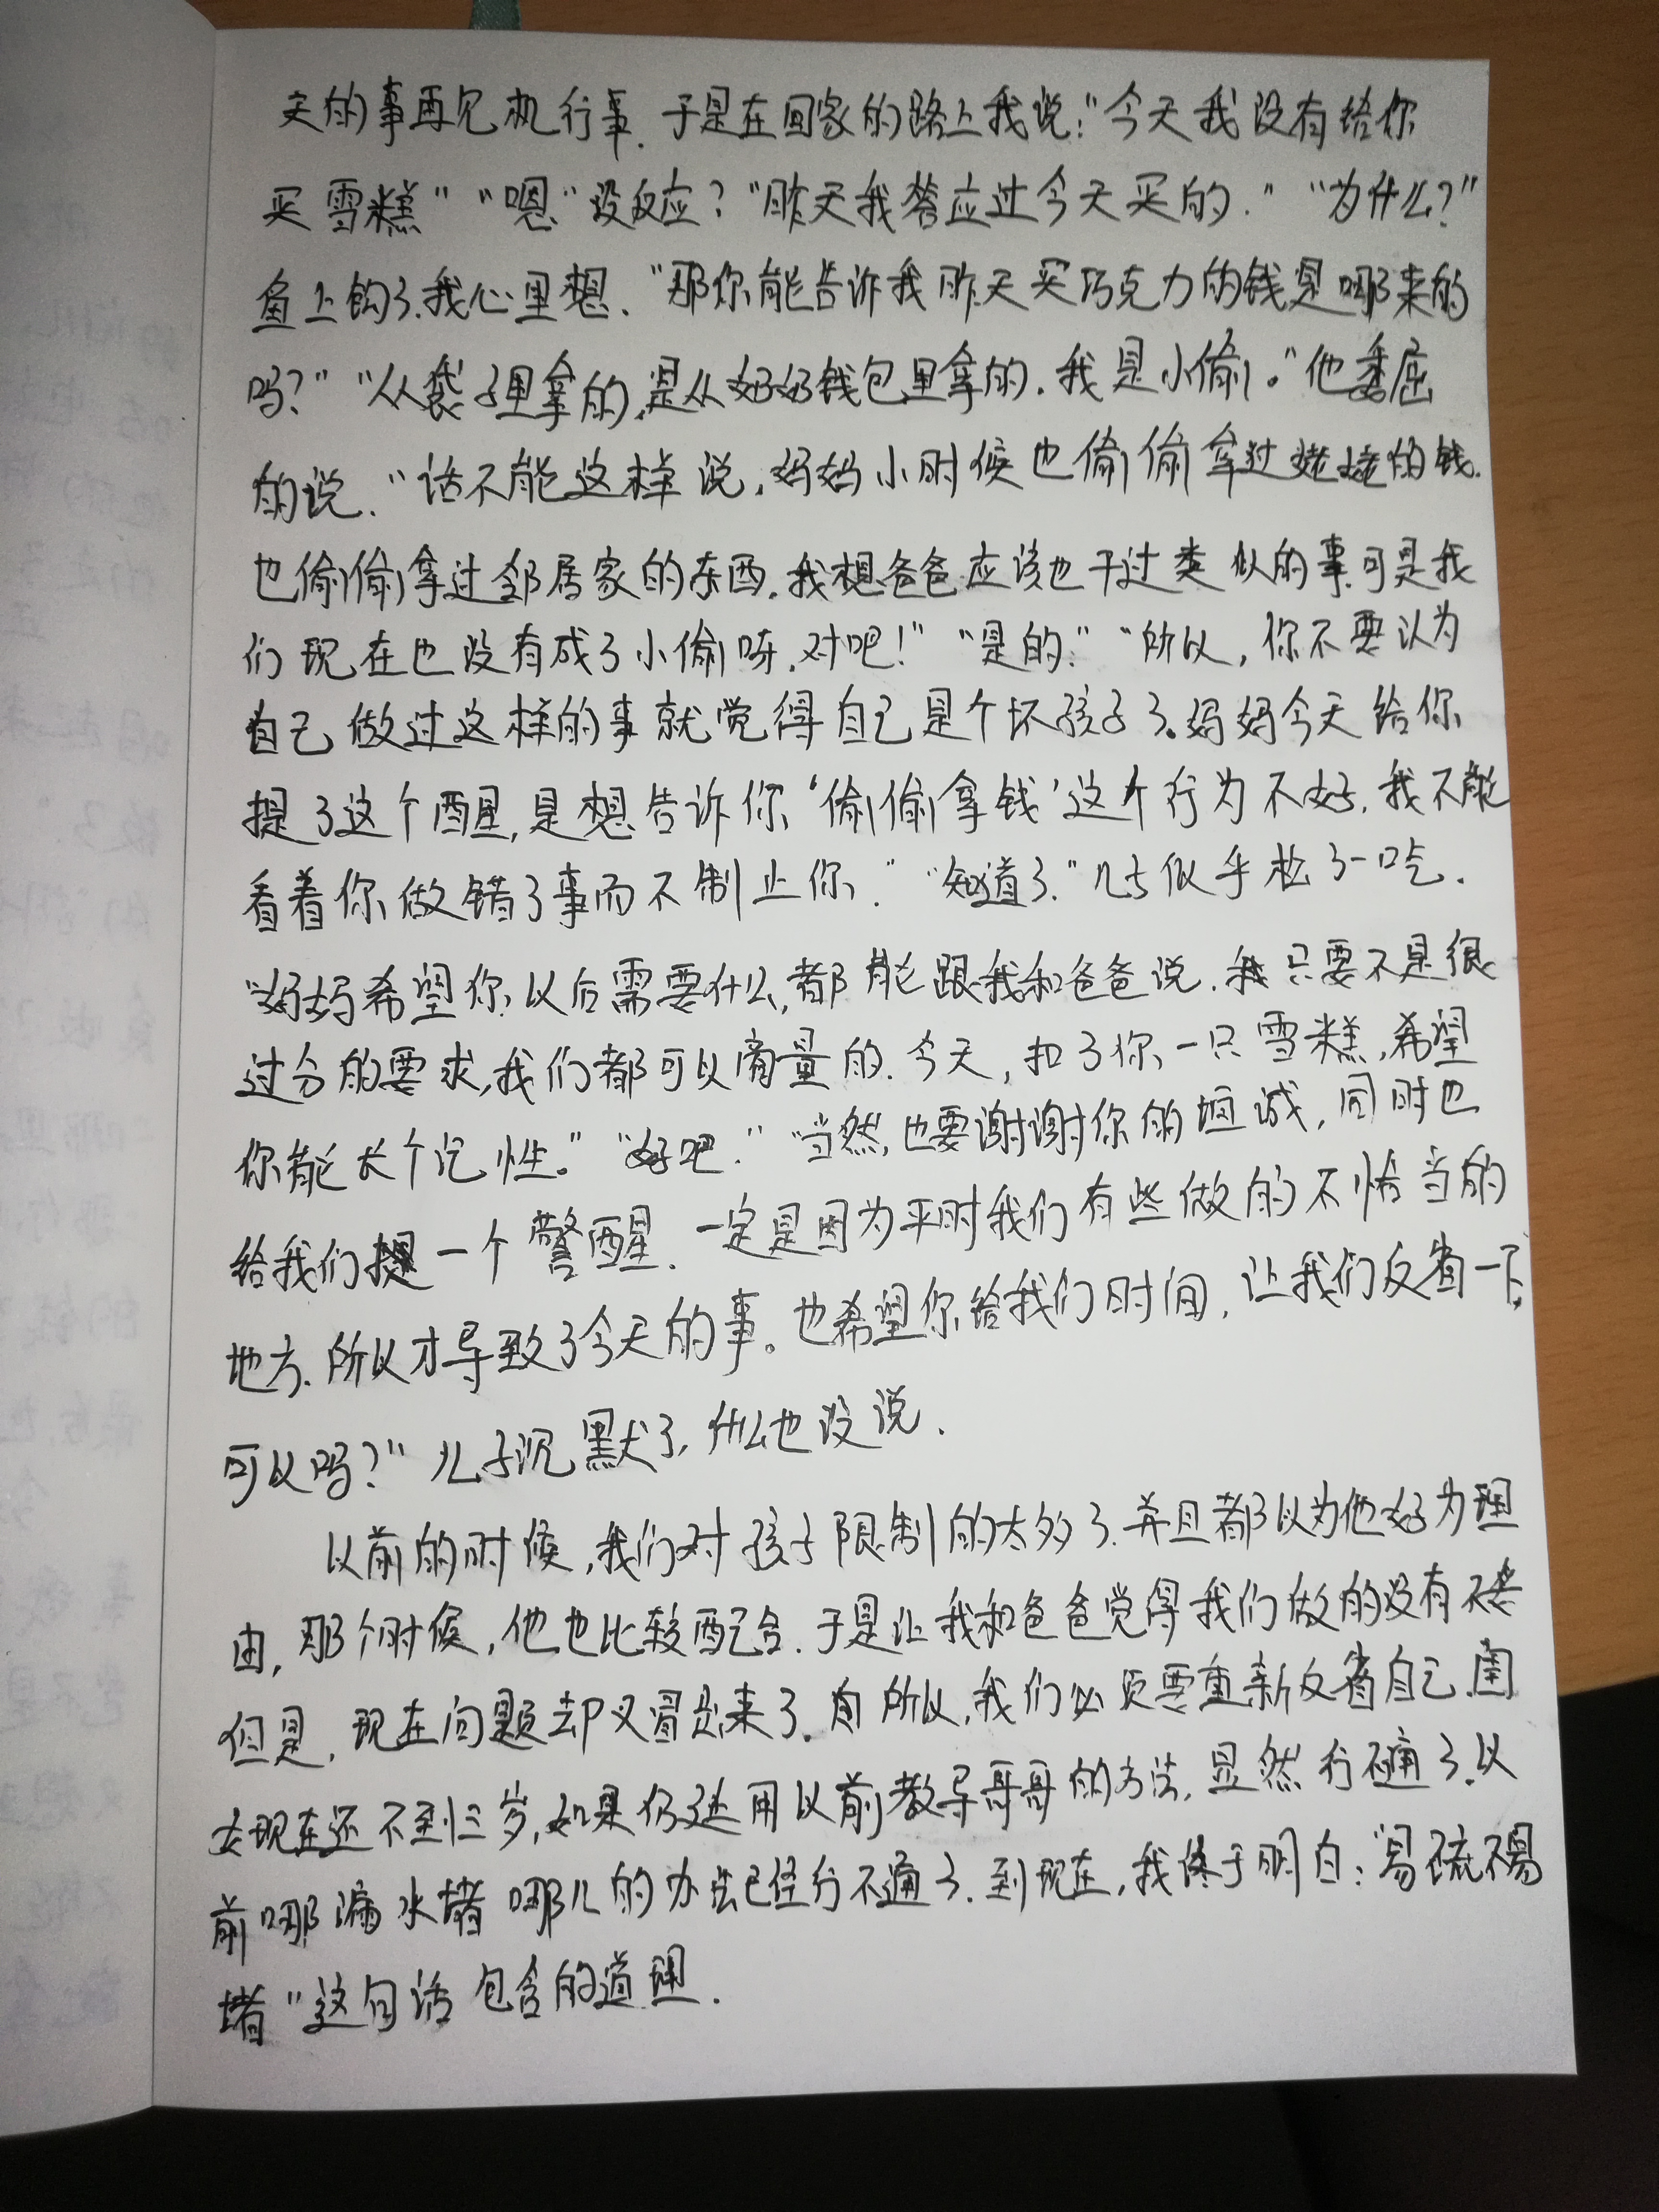 天的事再见机行事.于是在回家的路上我说:"今天我没有给你
买雪糕""嗯"没反应?"昨天我答应过今天买的.""为什么?"
鱼上钩了.我心里想."那你能告诉我昨天买巧克力的钱是哪来的
吗?""从袋子里拿的,是从妈妈钱包里拿的.我是小偷。"他委屈
的说."话不能这样说,妈妈小时候也偷偷拿过姥姥的钱.
也偷偷拿过邻居家的东西.我想爸爸应该也干过类似的事.可是我
们现在也没有成了小偷呀.对吧!""是的.""所以,你不要认为
自己做过这样的事就觉得自己是个坏孩子了。妈妈今天给你
提了这个醒,是想告诉你'偷偷拿钱'这个行为不好.我不能
看着你做错了事而不制止你.""知道了."儿子似乎松了一口气.
"妈妈希望你以后需要什么,都能跟我和爸爸说.我只要不是很
过分的要求,我们都可以商量的.今天,扣了你一只雪糕,希望
你能长个记性。""好吧.""当然,也要谢谢你的坦诚,同时也
给我们提一个警醒.一定是因为平时我们有些做的不恰当的
地方.所以才导致了今天的事。也希望你给我们时间,让我们反省一下,
可以吗?"儿子沉默了,什么也没说.
以前的时候,我们对孩子限制的太多了.并且都以为他好为理
由,那个时候,他也比较配合.于是让我和爸爸觉得我们做的没有不妥
但是,现在问题却又冒出来了.所以,我们必须要重新反省自己.闺
女现在还不到三岁,如果仍还用以前教导哥哥的方法,显然行不通了.以
前哪漏水堵哪儿的办法已经行不通了.到现在,我终于明白:"易疏不易
堵"这句话包含的道理.